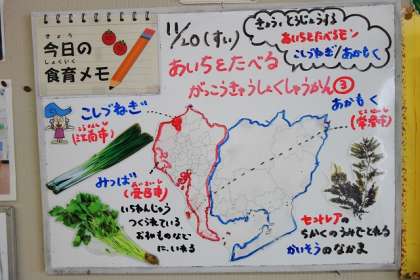 きょう
今日の
しょくいく
食育メモ
11/20(すい)
きょう、とうじょうする
あいちをたべるモン
こしづねぎ/あかもく
あいちをたべる
がっこうきゅうしょくしゅうかん③
こしづねぎ
(江南市)
みつば
いちねんじゅう
つくられている。
などに、いれる
あかもく
(常滑市)
セントレアの
ちかくのうみでとれる
かいそうのなかま